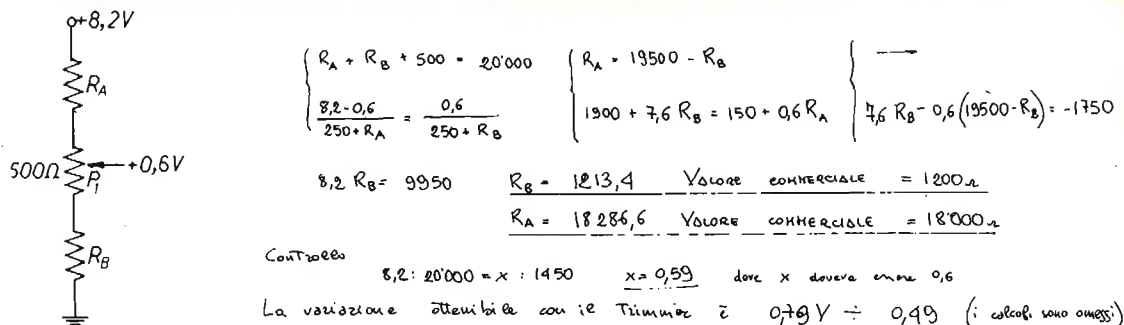 +8,2V
RA
500Ω
P1
+0,6V
RB
RA + RB + 500 = 20'000
RA = 19500 - RB
8,2-0,6 / 250+RA = 0,6 / 250+RB
1900 + 7,6 RB = 150 + 0,6 RA
7,6 RB - 0,6 (19500-RB) = -1750
8,2 RB = 9950
RB = 1213,4 VALORE COMMERCIALE = 1200Ω
RA = 18286,6 VALORE COMMERCIALE = 18'000Ω
CONTROLLO
8,2 : 20'000 = x : 1450 x = 0,59 dove x doveva essere 0,6
La variazione ottenibile con il Trimmer è 0,79 V ÷ 0,49 (i calcoli sono omessi)